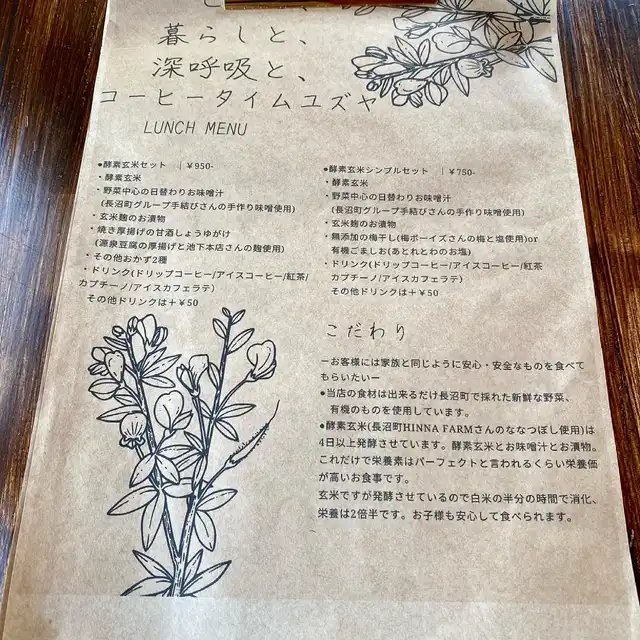 暮らしと、
深呼吸と、
コーヒータイムユズヤ
LUNCH MENU
●酵素玄米セット ｜￥950-
・酵素玄米
・野菜中心の日替わりお味噌汁
(長沼町グループ手結びさんの手作り味噌使用)
・玄米麹のお漬物
・焼き厚揚げの甘酒しょうゆがけ
(源泉豆腐の厚揚げと池下本店さんの麹使用)
・その他おかず2種
・ドリンク(ドリップコーヒー/アイスコーヒー/紅茶/
カプチーノ/アイスカフェラテ)
その他ドリンクは＋￥50
●酵素玄米シンプルセット ｜￥750-
・酵素玄米
・野菜中心の日替わりお味噌汁
(長沼町グループ手結びさんの手作り味噌使用)
・玄米麹のお漬物
・無添加の梅干し(梅ボーイズさんの梅と塩使用)or
有機ごましお(あとれとわのお塩)
・ドリンク(ドリップコーヒー/アイスコーヒー/紅茶
カプチーノ/アイスカフェラテ)
その他ドリンクは＋￥50
こだわり
ーお客様には家族と同じように安心・安全なものを食べて
もらいたいー
●当店の食材は出来るだけ長沼町で採れた新鮮な野菜、
有機のものを使用しています。
●酵素玄米(長沼町HINNA FARMさんのななつぼし使用)は
4日以上発酵させています。酵素玄米とお味噌汁とお漬物。
これだけで栄養素はパーフェクトと言われるくらい栄養価
が高いお食事です。
玄米ですが発酵させているので白米の半分の時間で消化、
栄養は2倍半です。お子様も安心して食べられます。